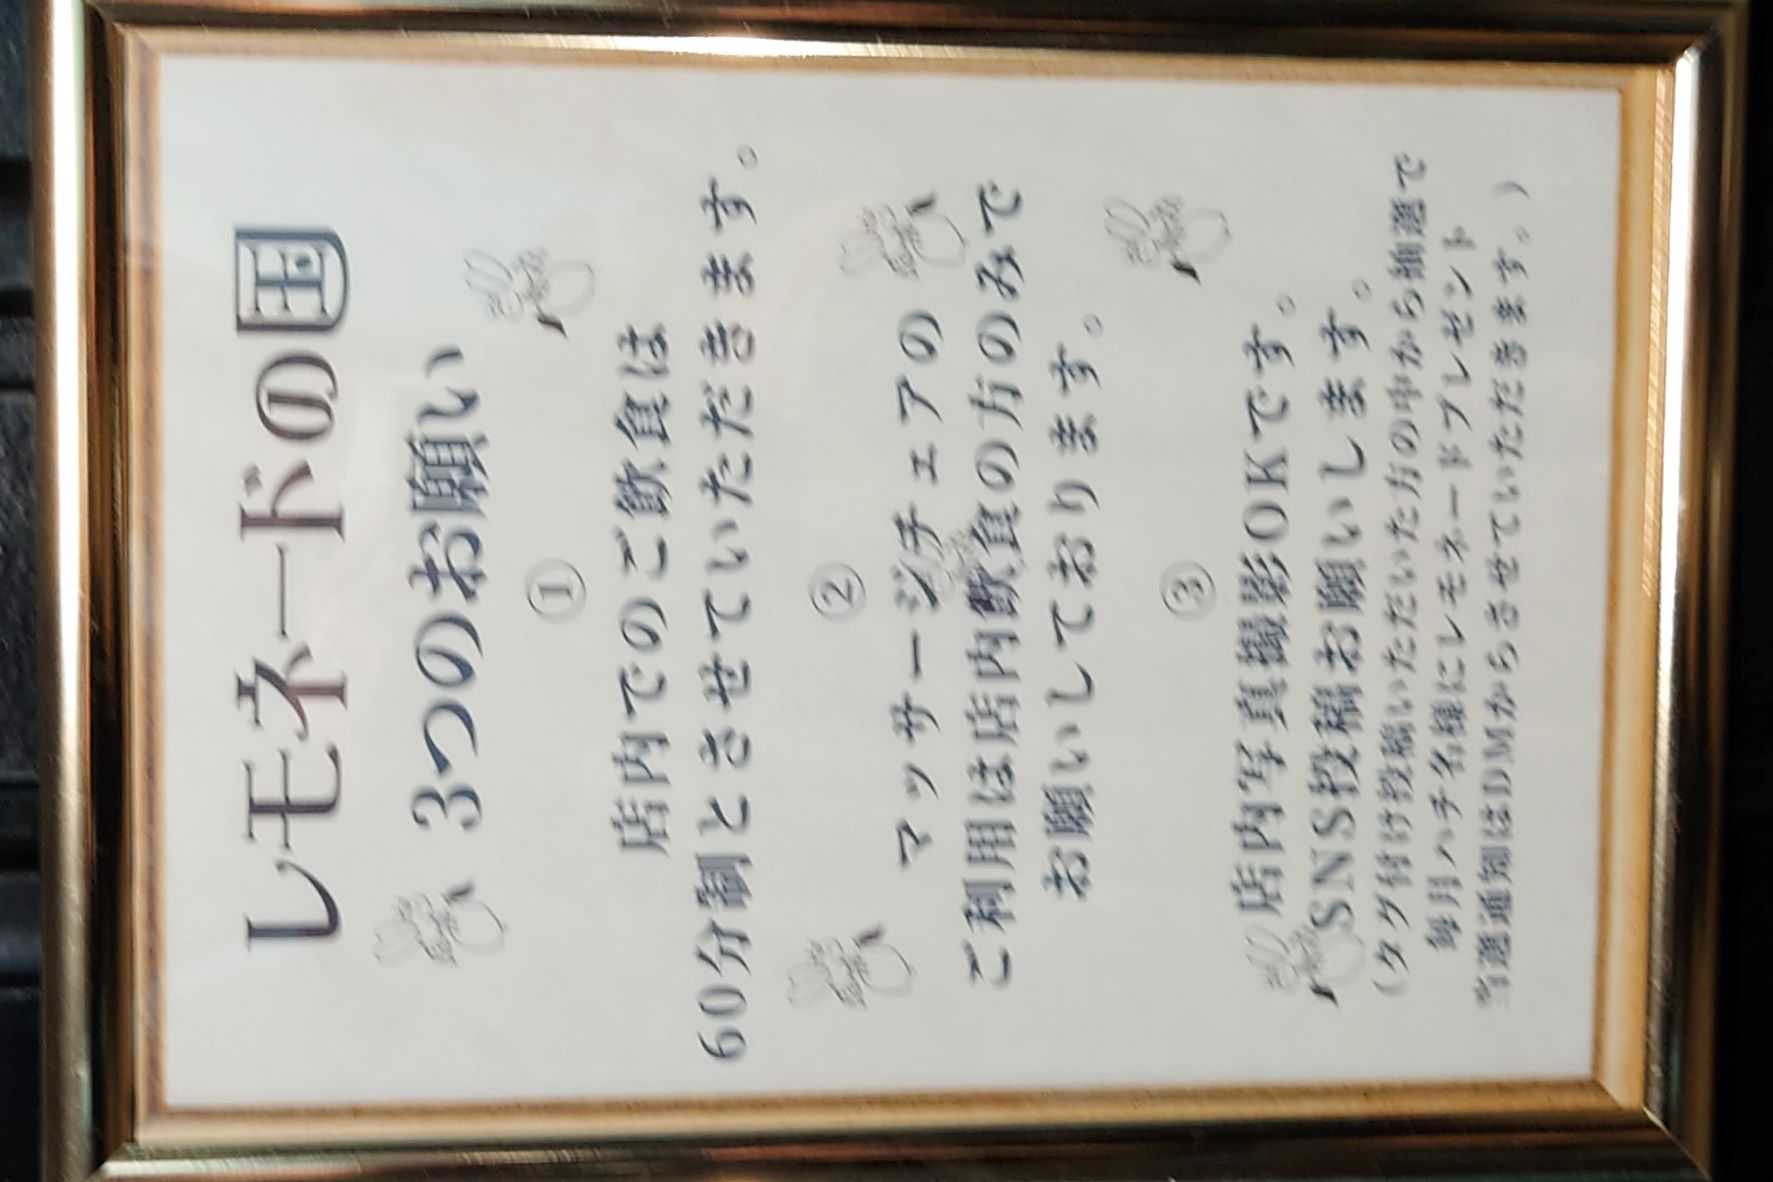 レモネードの国
3つのお願い
①
店内でのご飲食は
60分制とさせていただきます。
②
マッサージチェアの
ご利用は店内飲食の方のみで
お願いしております。
③
店内写真撮影OKです。
SNS投稿お願いします。
(タグ付け投稿いただいた方の中から抽選で
毎月ハチ名様にレモネードプレゼント
当選通知はDMからさせていただきます。)